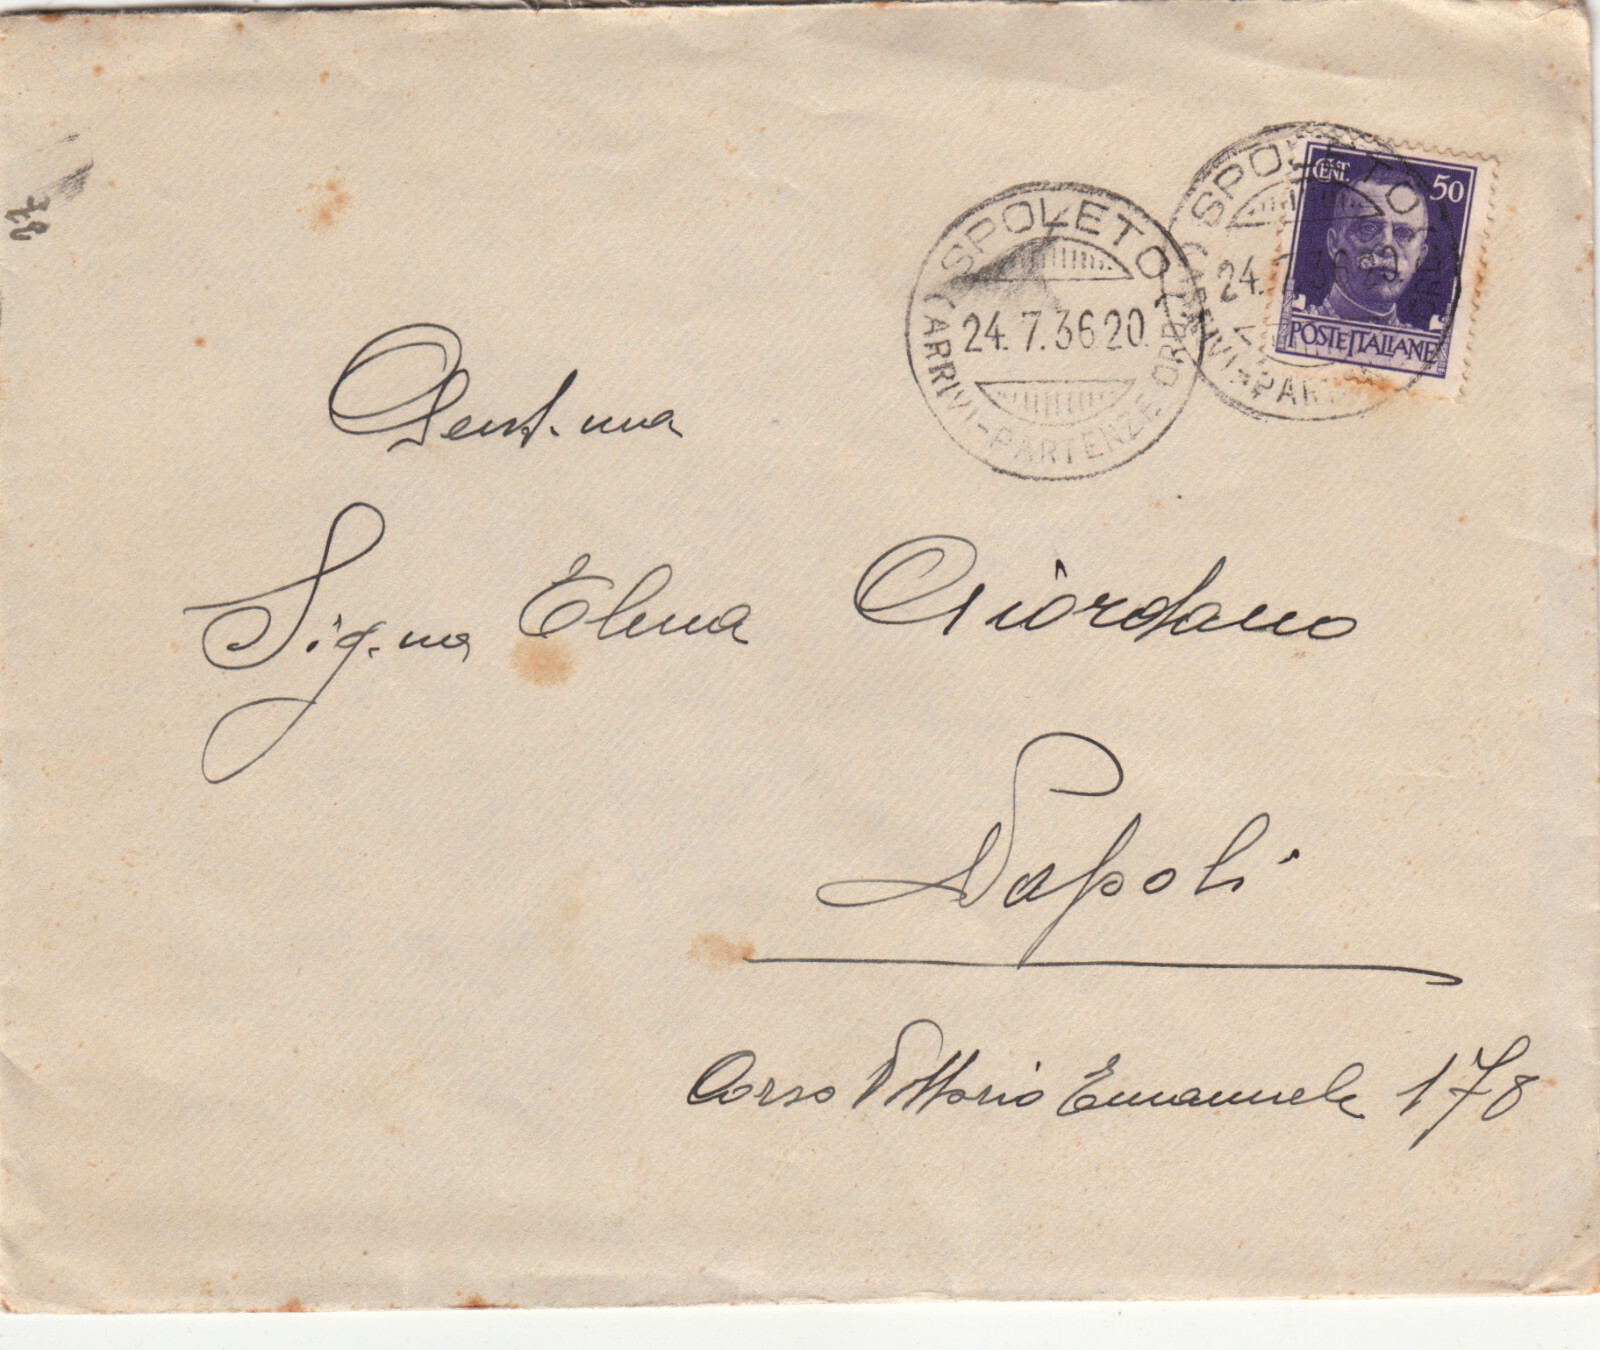 CENT. 50
POSTE ITALIANE
SPOLETO
24.7.36 20
(ARRIVI-PARTENZE ORD.)
SPOLETO
24.7.36 20
Gent.ma
Sig.na Elena Giordano
Napoli
Corso Vittorio Emanuele 178